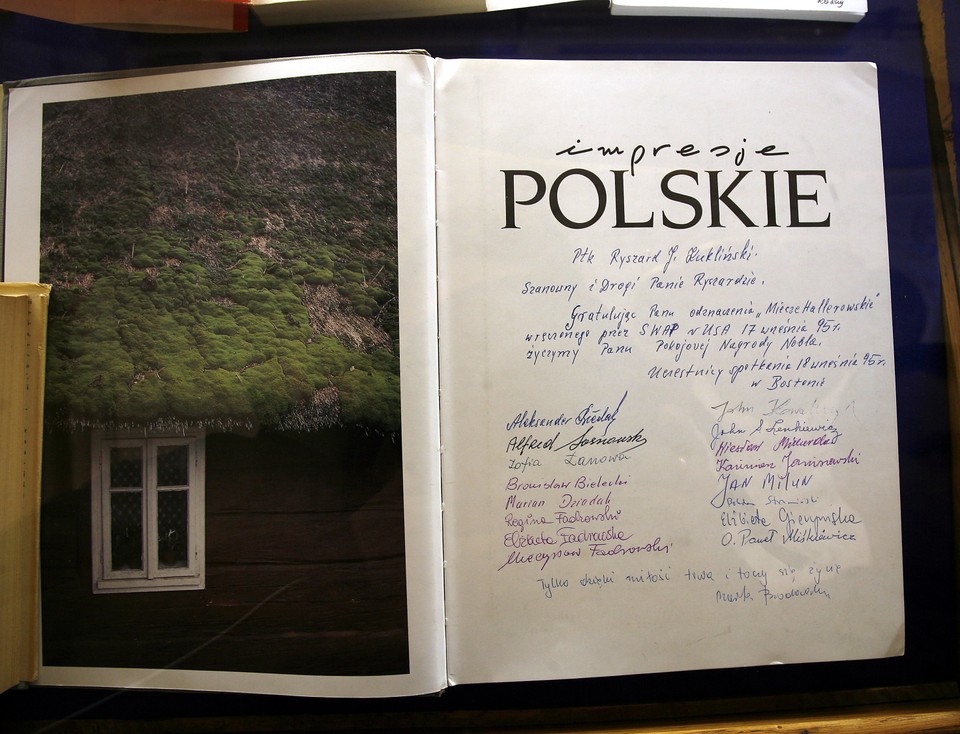 impresje
POLSKIE
Płk Ryszard J. Kukliński.
Szanowny i Drogi Panie Ryszardzie.
Gratulując Panu odznaczenia „Miecze Hallerowskie"
wręczonego przez SWAP w USA 17 września 95r.
życzymy Panu Pokojowej Nagrody Nobla.
Uczestnicy spotkania 18 września 95r.
w Bostonie
Aleksander
Alfred Sosnowski
Zofia Zanowa
Bronisław Bielecki
Marian Dziadak
Regina Fadrowski
Elżbieta Fadrowska
Mieczysław Fadrowski
John
John S Lenkiewicz
Wiesław
Kazimierz
JAN MITUN
Elżbieta Gierymska
O. Paweł Miśkiewicz
Tylko dzięki miłość trwa i toczy się życie
Marek Brodowski